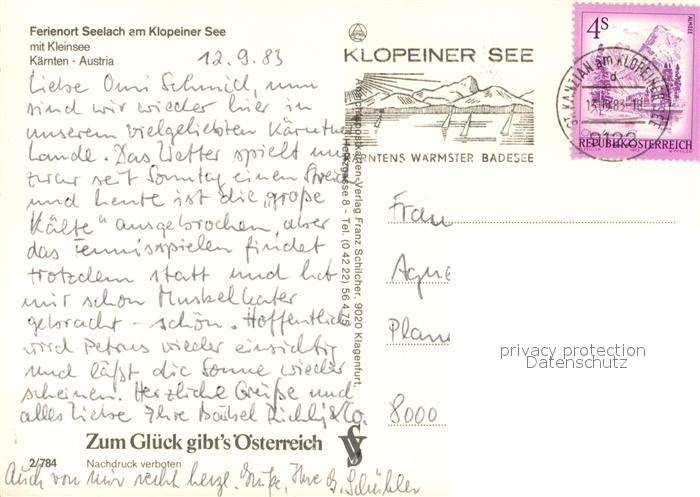 Ferienort Seelach am Klopeiner See
mit Kleinsee
Kärnten - Austria
12.9.83
Liebe Omi Schmid, nun
sind wir wieder hier in
unserem vielgeliebten Kärntner
Lande. Das Wetter spielt uns
zwar seit Sonntag einen Streich
und heute ist die "große
Kälte" ausgebrochen, aber
das Tennisspielen findet
trotzdem statt und hat
mir schon Muskelkater
gebracht - schön. Hoffentlich
wird Petrus wieder einsichtig
und läßt die Sonne wieder
scheinen. Herzliche Grüße und
alles Liebe Ihre Bärbel & Co.
Zum Glück gibt's Österreich
2/784 Nachdruck verboten
Auch von mir recht herzl. Grüße, Ihre G. Schüßler
Ansichtspostkarten-Verlag Franz Schilcher, 9020 Klagenfurt,
Herzgasse 8 - Tel. (0 42 22) 56 4 75
KLOPEINER SEE
KÄRNTENS WARMSTER BADESEE
ST. KANZIAN am KLOPEINERSEE
d
13.-9.83-18
9122
4S
ALMSEE
REPUBLIK ÖSTERREICH
Frau
Agne
Plan
8000
privacy protection
Datenschutz